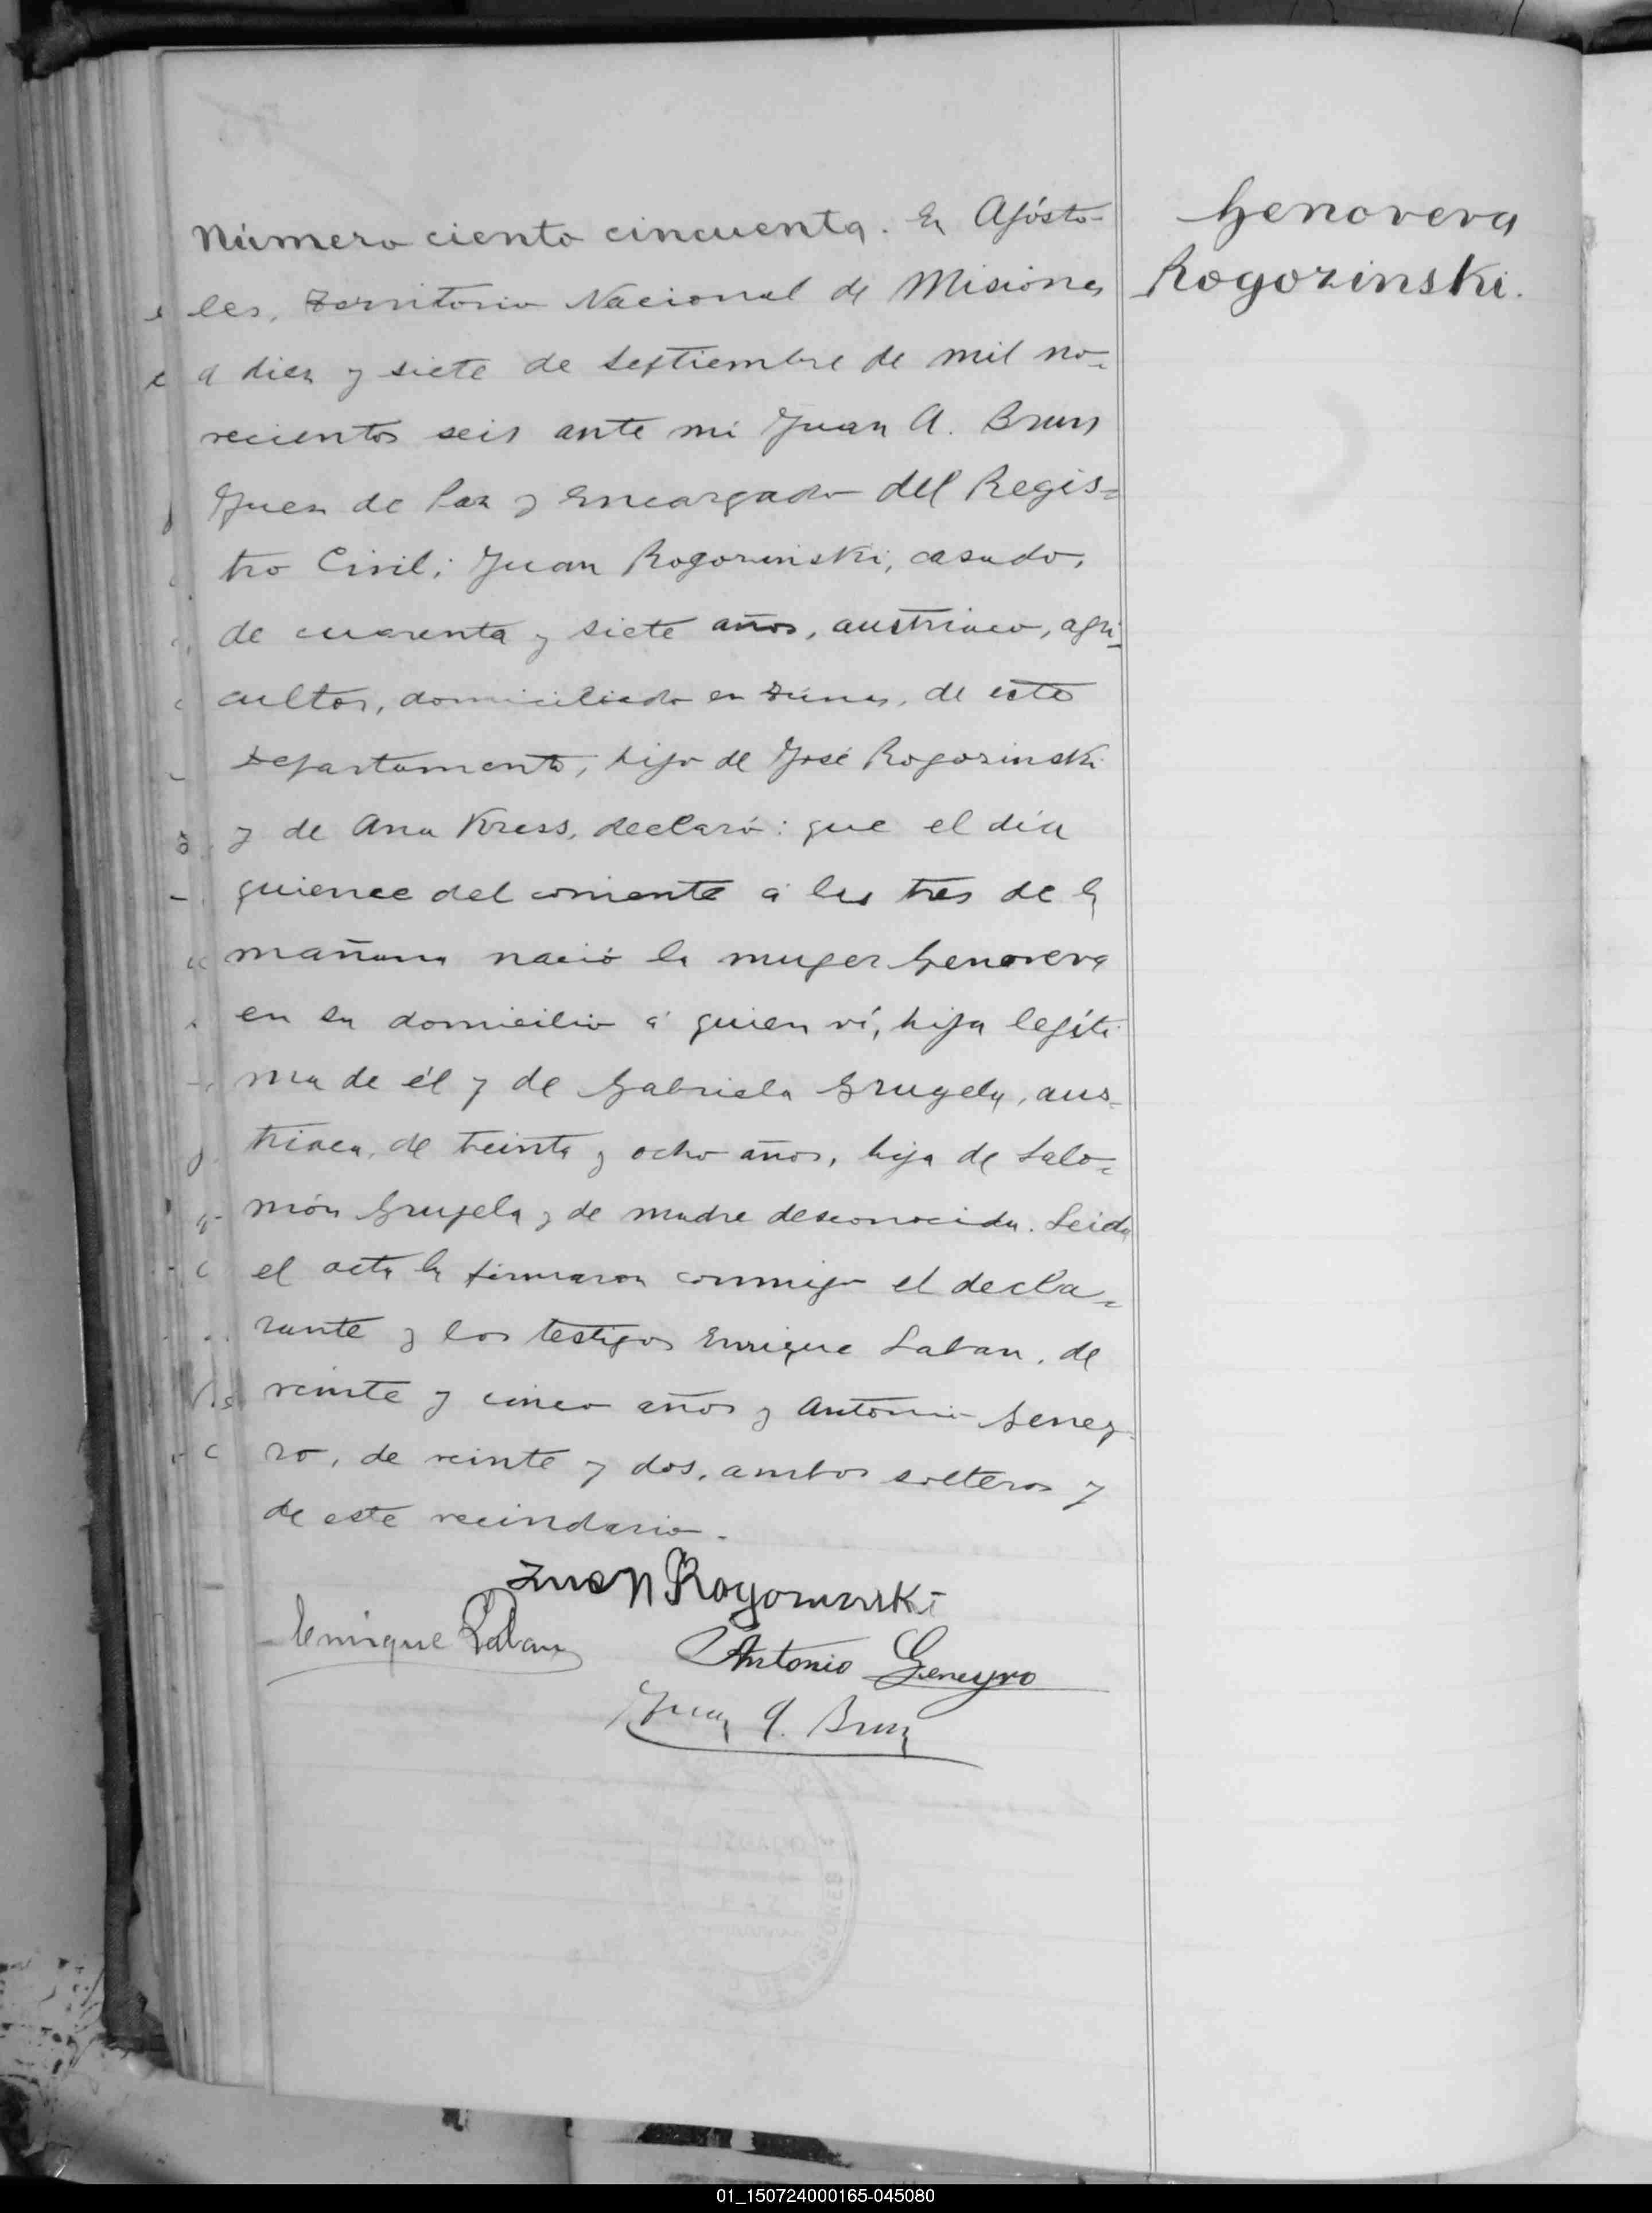 Genoveva
Rogozinski.
Número ciento cincuenta. En Apósto-
les, Territorio Nacional de Misiones
a diez y siete de Septiembre de mil no-
vecientos seis ante mi Juan A. Brun
Juez de Paz y Encargado del Regis=
tro Civil; Juan Rogozinski, casado,
de cuarenta y siete años, austriaco, agri-
cultor, domiciliado en de este
Departamento, hijo de José Rogozinski
y de Ana Kress, declaró: que el día
quience del corriente á las tres de la
mañana nació la muger Genoveva
en su domicilio á quien ví, hija legíti
ma de él y de Gabriela Grugela, aus-
triaca, de treinta y ocho años, hija de Salo-
món Grugela y de madre desconocida. Leida
el acta la firmaron conmigo el decla-
rante y los testigos Enrique Laban, de
veinte y cinco años y Antonio Geney-
ro, de veinte y dos, ambos solteros y
de este vecindario.
Juan Rogozinski
Enrique Laban Antonio Geneyro
Juan A. Brun
01_150724000165-045080